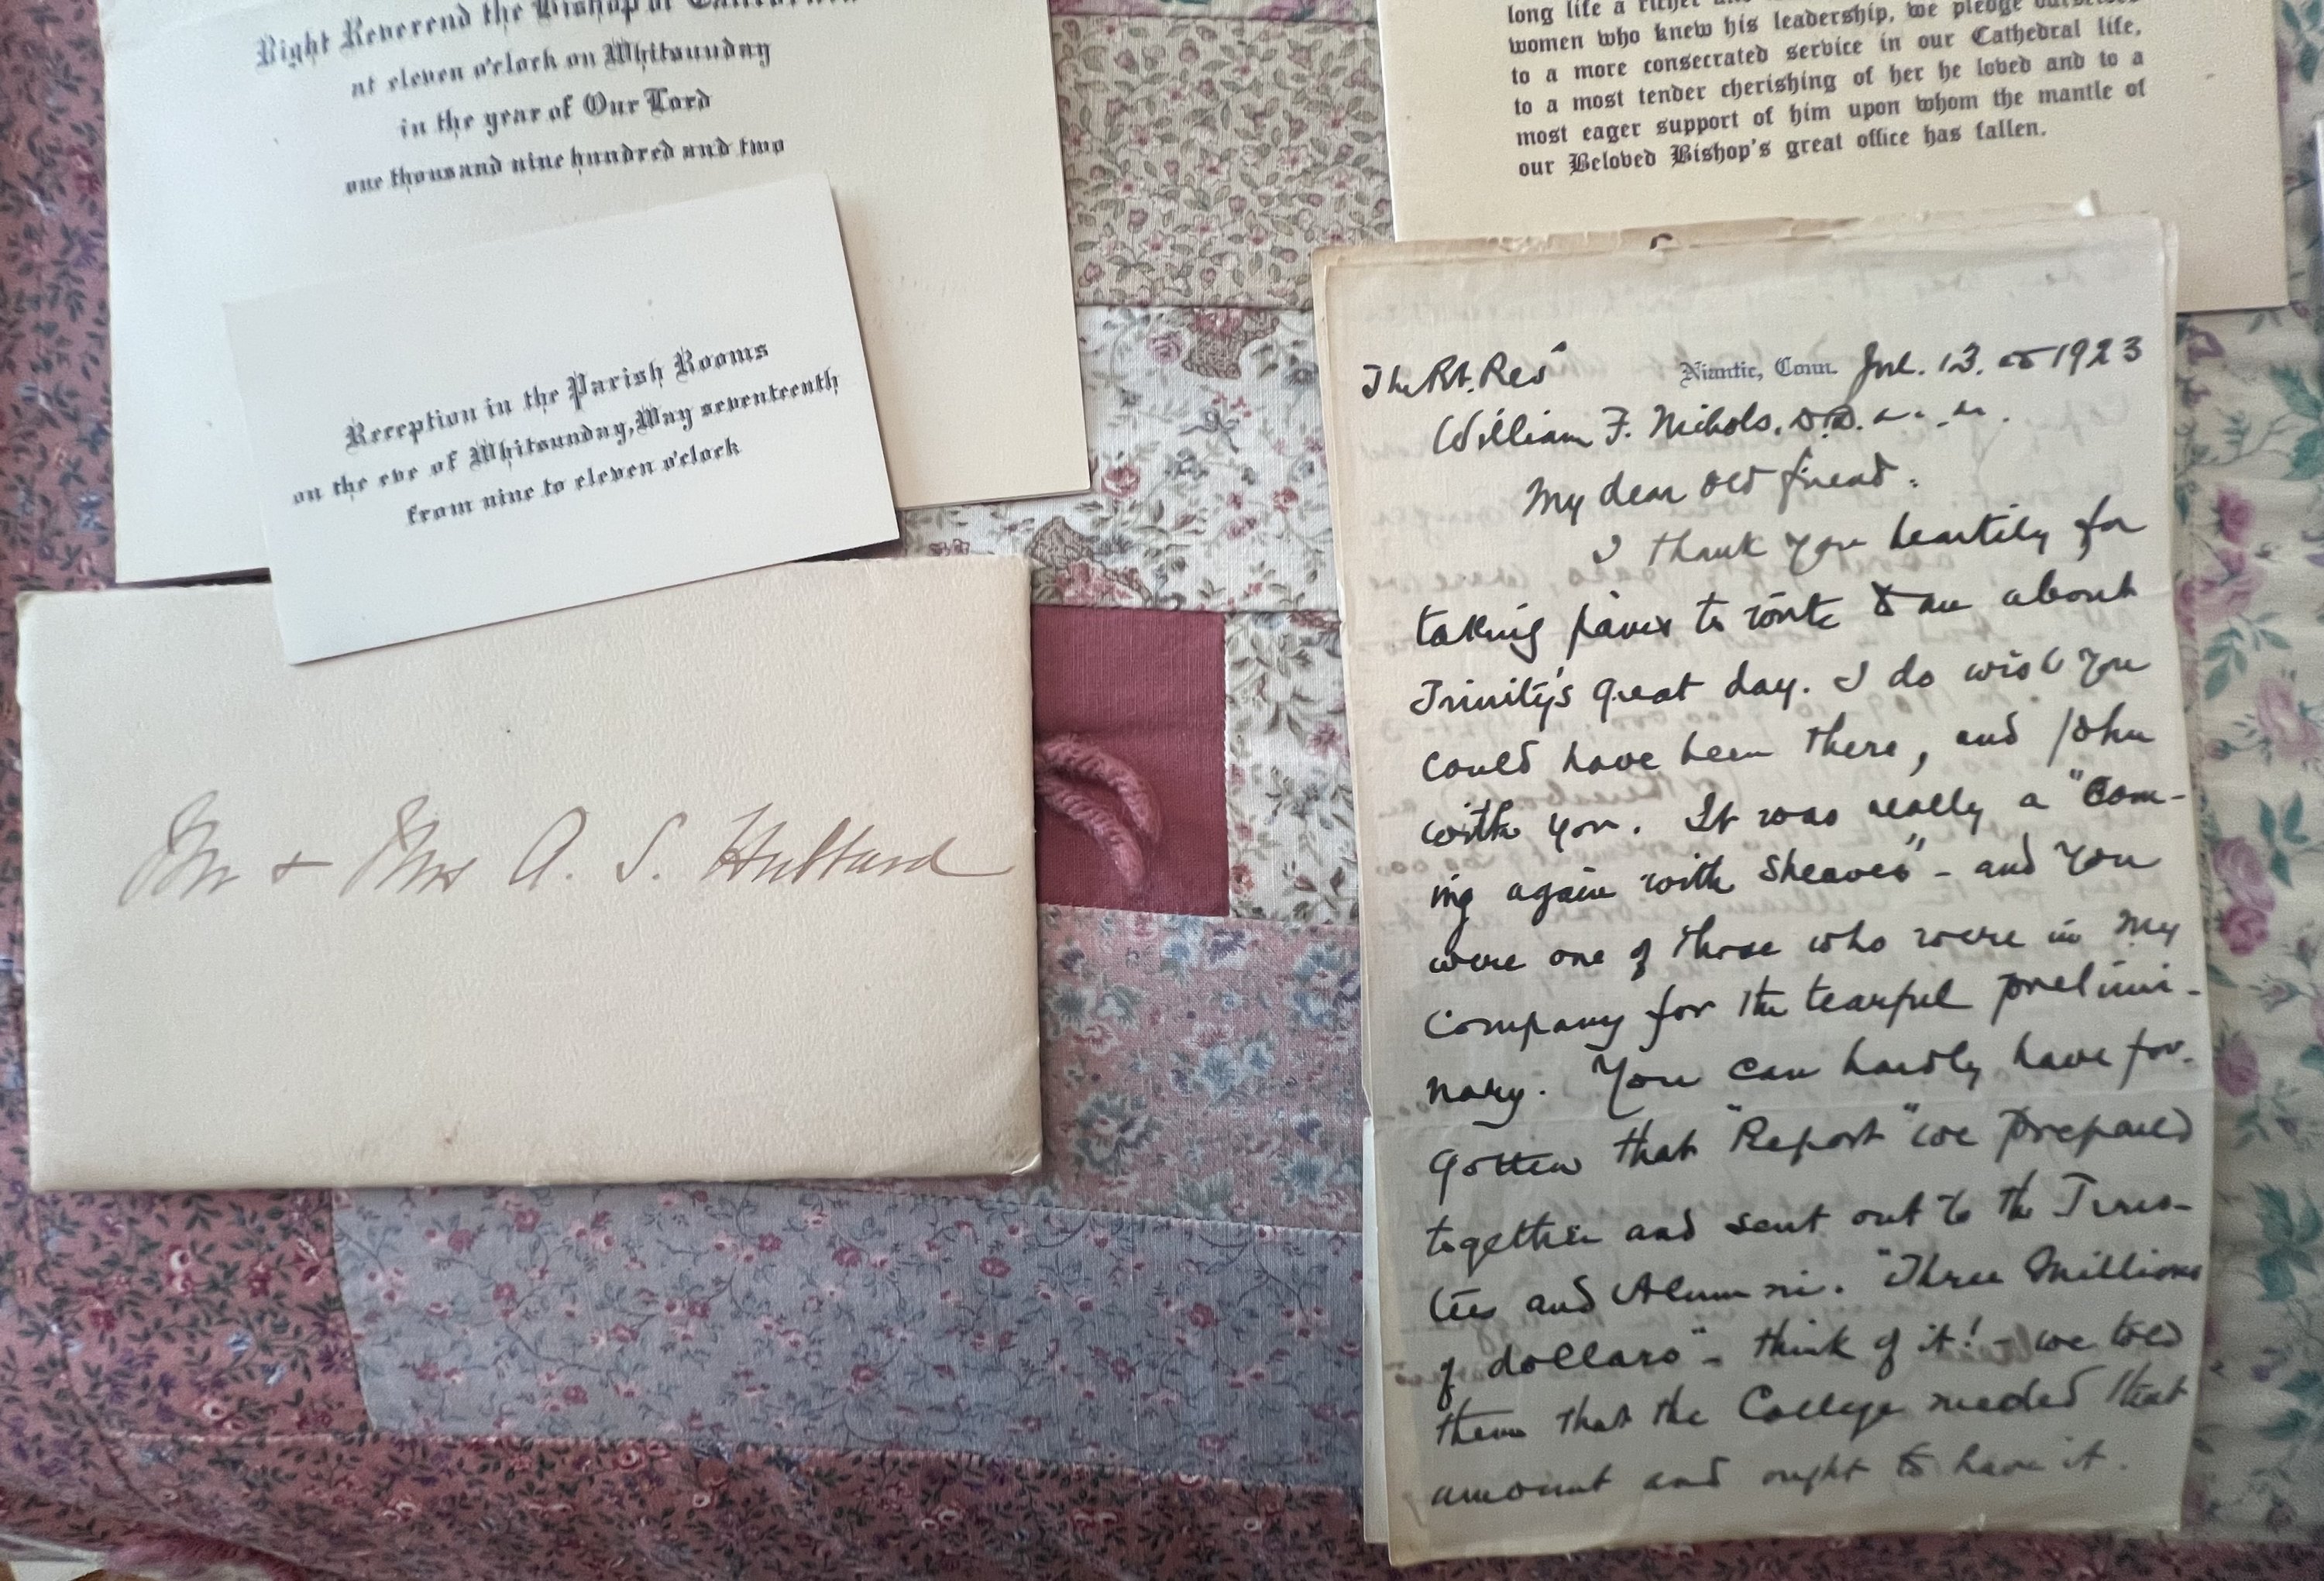 Right Reverend the Bishop of California
at eleven o'clock on Whitsunday
in the year of Our Lord
one thousand nine hundred and two
Reception in the Parish Rooms
on the eve of Whitsunday, May seventeenth
from nine to eleven o'clock
Mr + Mrs A. S. Hubbard
long life a richer and
women who knew his leadership, we pledge ourselves
to a more consecrated service in our Cathedral life,
to a most tender cherishing of her he loved and to a
most eager support of him upon whom the mantle of
our Beloved Bishop's great office has fallen.
The Rt. Rev
Niantic, Conn. Jul. 13. 1923
William F. Nichols, D.D.
My dear old friend:
I thank you heartily for
taking pains to write to me about
Trinity's great day. I do wish you
could have been there, and John
with you. It was really a "Com-
ing again with Sheaves" - and you
were one of those who were in my
Company for the tearful prelimi-
nary. You can hardly have for-
gotten that "Report" we prepared
together and sent out to the Trus-
tees and Alumni. "Three Millions
of dollars" - think of it! - we told
them that the College needed that
amount and ought to have it.